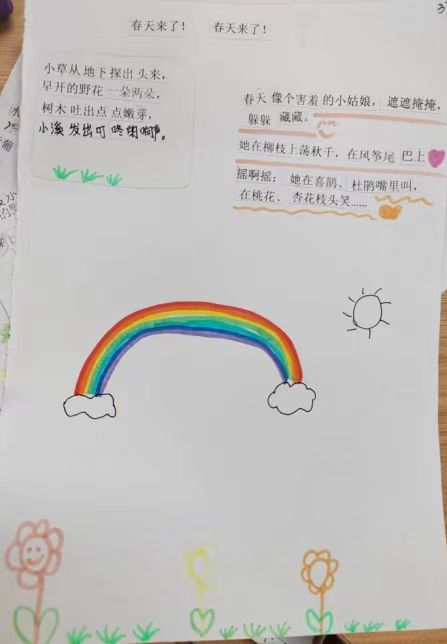 春天来了! 春天来了!
小草从地下探出头来,
早开的野花一朵两朵,
树木吐出点点嫩芽,
小溪发出叮咚
春天像个害羞的小姑娘, 遮遮掩掩,
躲躲藏藏。
她在柳枝上荡秋千, 在风筝尾巴上
摇啊摇; 她在喜鹊、杜鹃嘴里叫,
在桃花、杏花枝头笑……